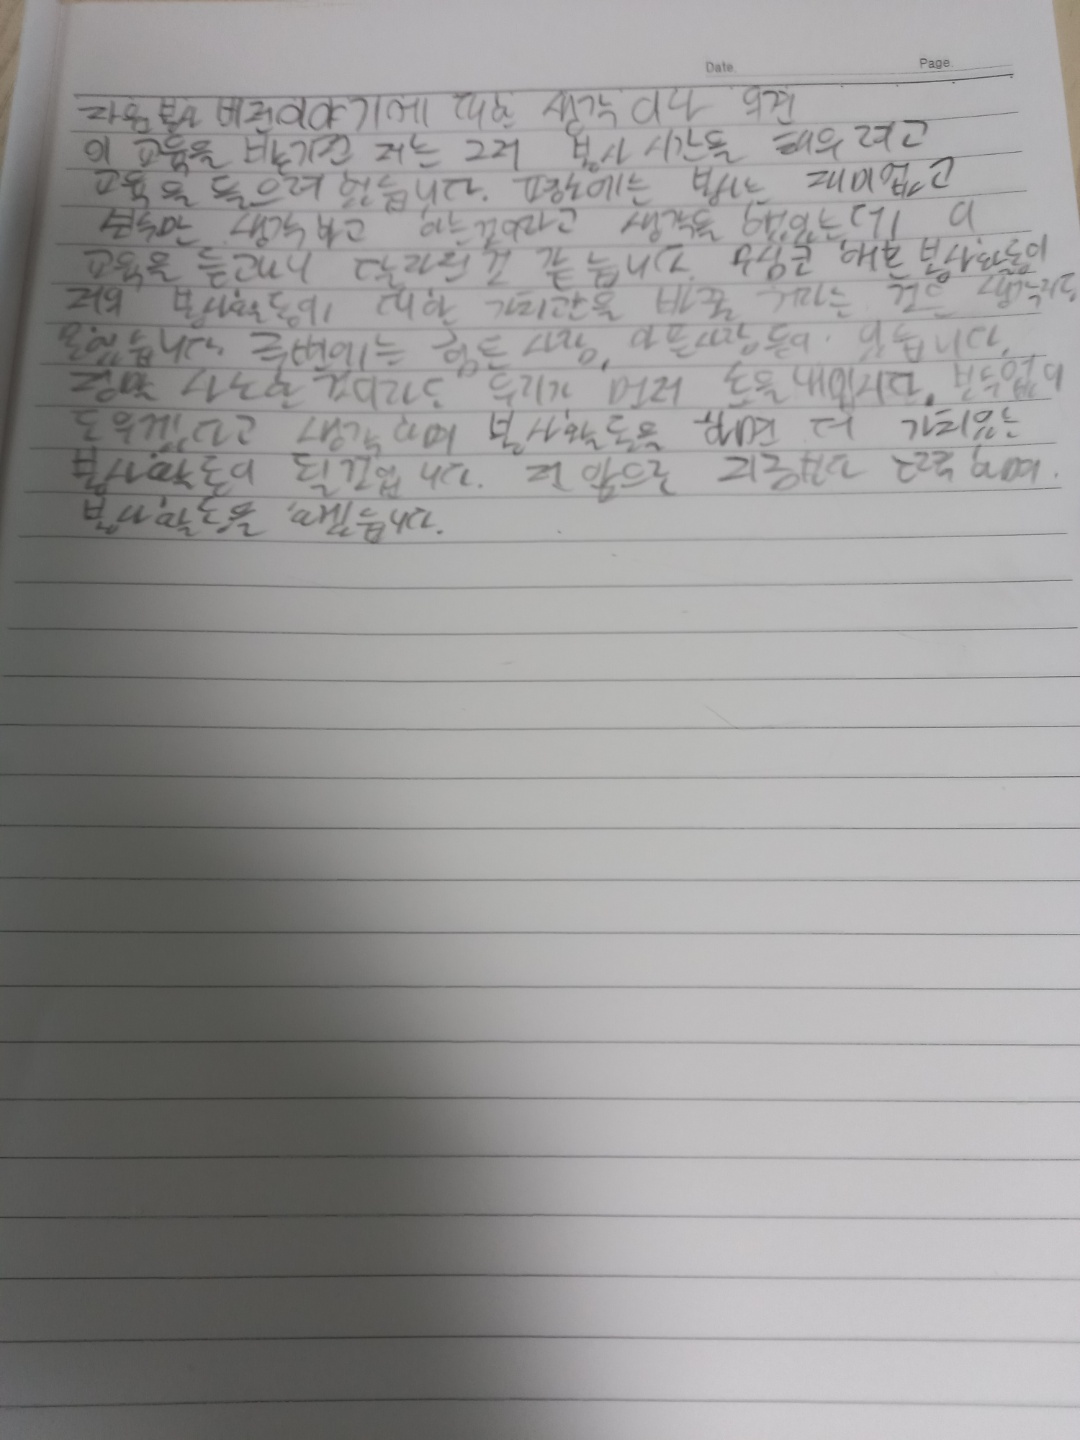 Date. Page.
자원봉사 버전이야기에 대한 생각이나 의견
이 교육을 받기전 저는 그저 봉사 시간을 채우려고
교육을 들으려 했습니다. 평소에는 봉사는 재미없고
생각하고 하는것이라고 생각을 했었는데 이
교육을 듣고나니 달라진것 같습니다. 무심코 해온 봉사활동이
저의 봉사활동에 대한 가치관을 바꿀 것은
못했습니다. 주변에는 힘든사람, 아픈사람들이 있습니다.
사소한 것이라도 우리가 먼저 손을 내밀자.
도우겠다고 생각하며 봉사활동을 하면 더 가치있는
봉사활동이 될것입니다. 전 앞으로 노력하며.
봉사활동을 하겠습니다.